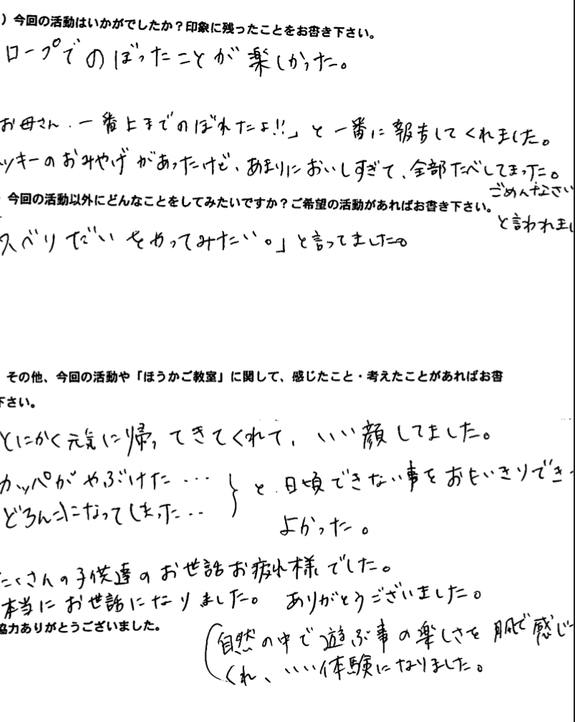 ）今回の活動はいかがでしたか？印象に残ったことをお書き下さい。
ロープでのぼったことが楽しかった。
お母さん、一番上までのぼれたよ!!」と一番に報告してくれました。
ッキーのおみやげがあったけど、あまりにおいしすぎて、全部たべしてまった。
ごめんなさい
と言われまし
今回の活動以外にどんなことをしてみたいですか？ご希望の活動があればお書き下さい。
スベリだいをやってみたい。」と言ってました。
その他、今回の活動や「ほうかご教室」に関して、感じたこと・考えたことがあればお書
下さい。
とにかく元気に帰ってきてくれて、いい顔してました。
カッパがやぶけた・・・
どろんこになってしまった・・・
と、日頃できない事をおもいきりでき
よかった。
たくさんの子供達のお世話お疲れ様でした。
本当にお世話になりました。ありがとうございました。
協力ありがとうございました。
（自然の中で遊ぶ事の楽しさを肌で感じ
くれ、いい体験になりました。